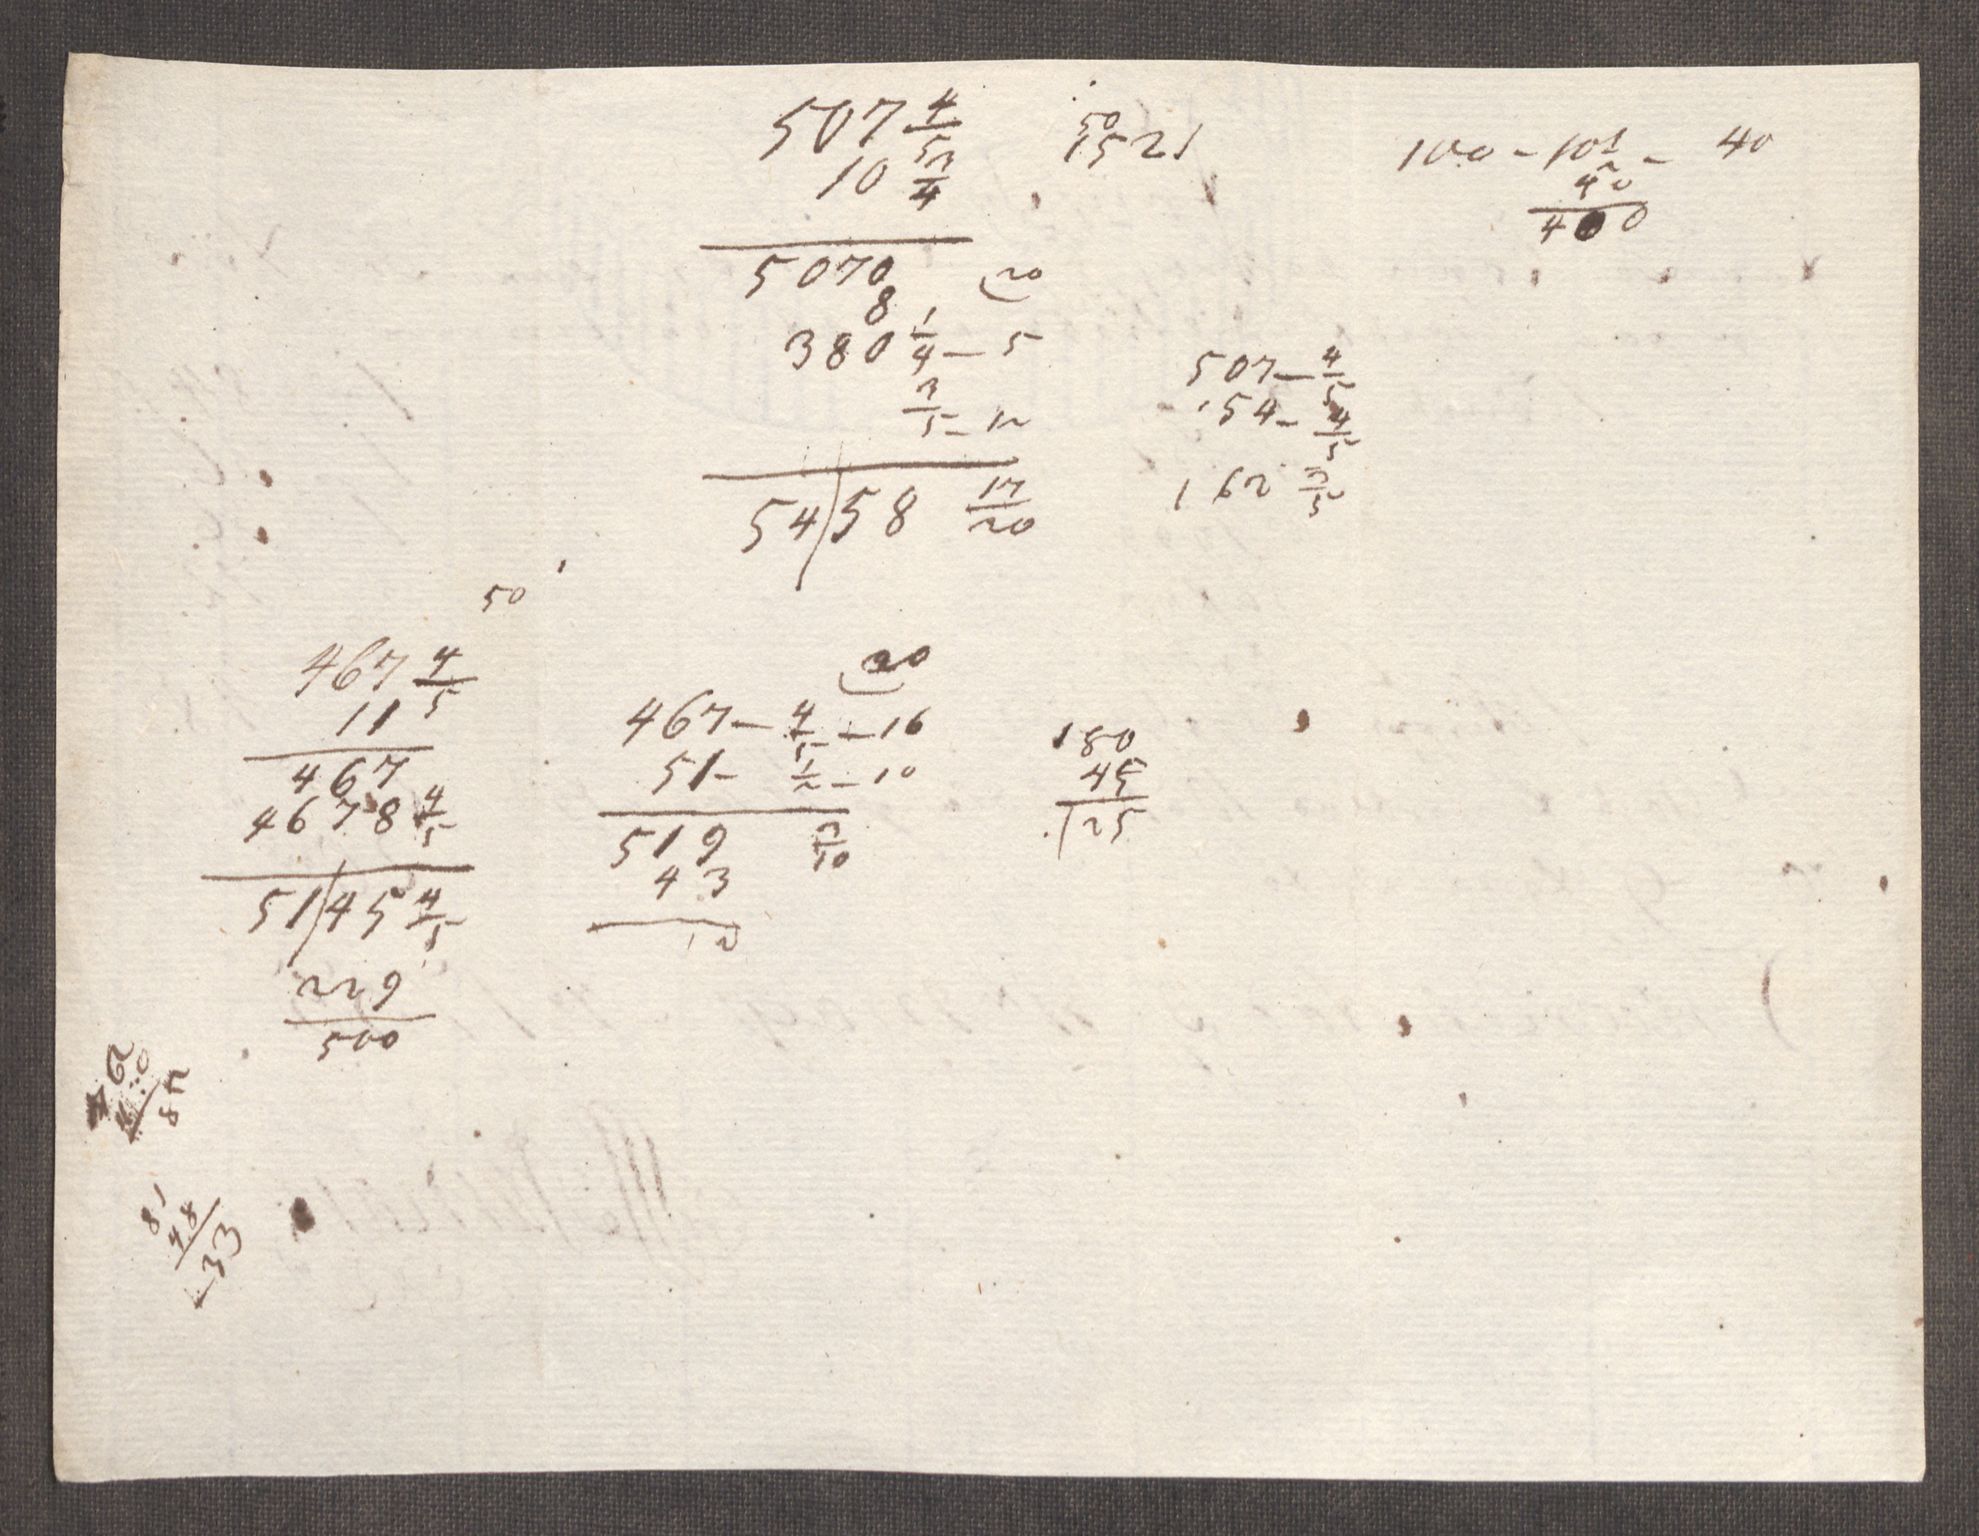 507 4/5
10 3/4
5070 20
8
380 1/4 – 5
3/5 – 12
54/58 17/20
50
1521
100 – 101 – 40
40
400
507 – 4/5
154 – 4/5
162 3/5
50
467 4/5
11
467
4678 4/5
51/45 4/5
229
500
20
467 – 4/5 – 16
51 – 1/2 – 10
519 3/10
43
12
180
45
125
85
81
48
33